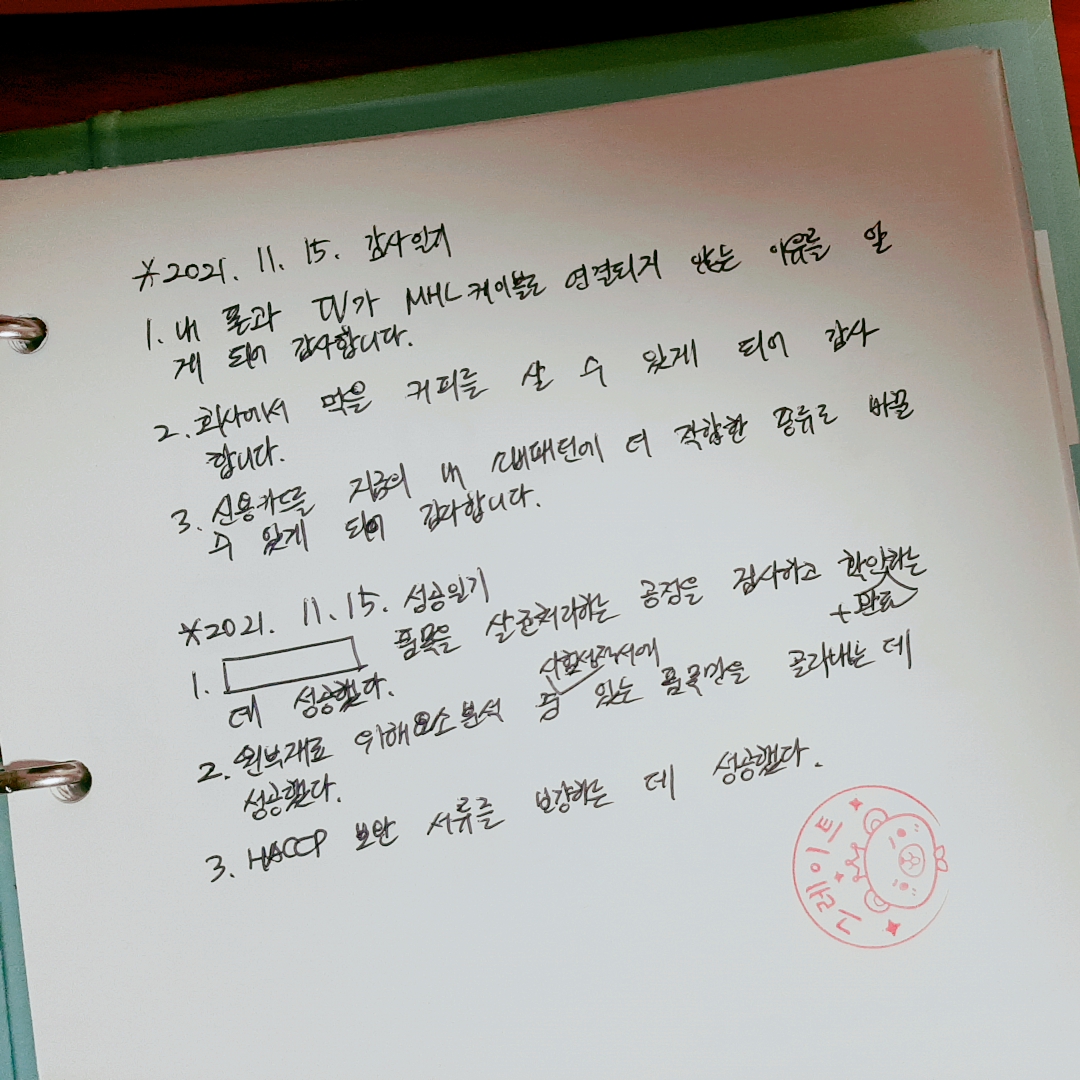 *2021. 11. 15. 감사일기
1. 내 폰과 TV가 MHL케이블로 연결되지 않는 이유를 알
게 되어 감사합니다.
2. 회사에서 먹을 커피를 살 수 있게 되어 감사
합니다.
3. 신용카드를 지금의 내 소비패턴에 더 적합한 종류로 바꿀
수 있게 되어 감사합니다.
*2021. 11. 15. 성공일기
1. 품목을 살균처리하는 공정을 검사하고 확인하는
+완료
데 성공했다.
시험성적서에
2. 원부재료 위해요소분석 중 있는 품목만을 골라내는 데
성공했다.
3. HACCP 보완 서류를 보강하는 데 성공했다.
그레이트